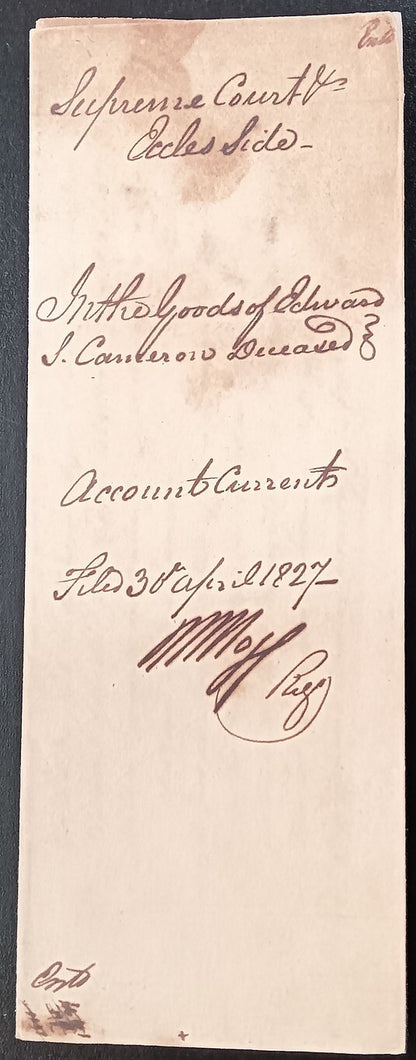 Entd
Supreme Court &c
Eccles Side -
In the Goods of Edward
S. Cameron Deceased
Account Current
Filed 30 April 1827
Regr
Entd